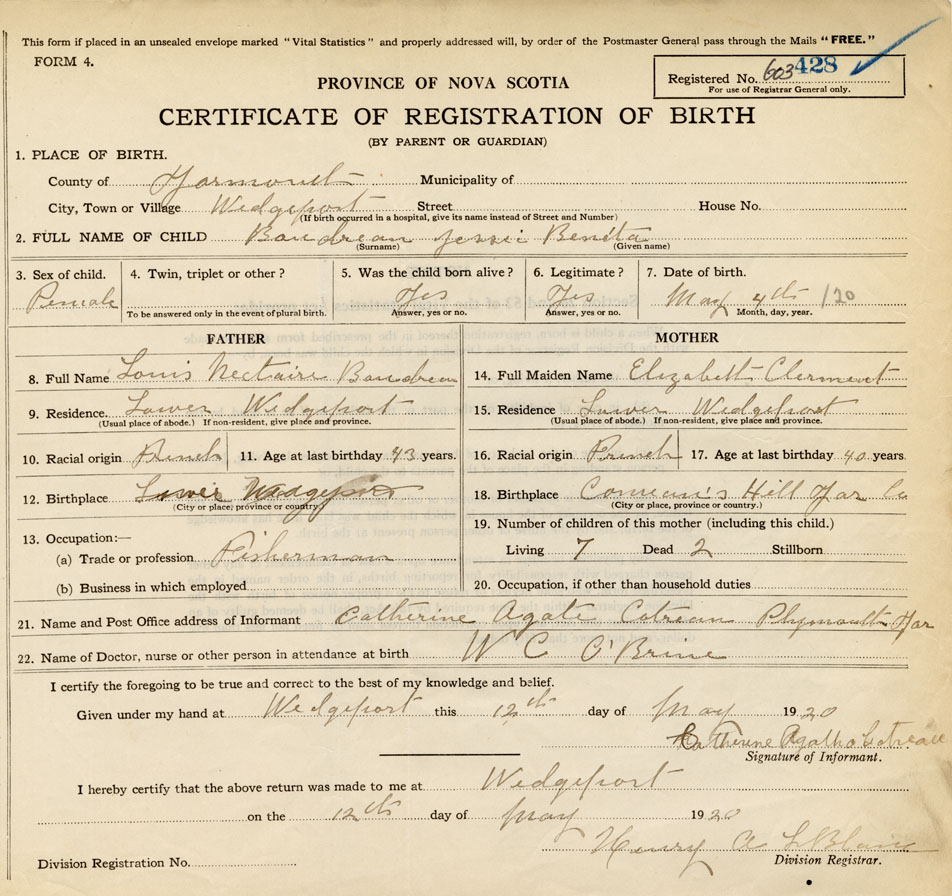 This form if placed in an unsealed envelope marked "Vital Statistics" and properly addressed will, by order of the Postmaster General pass through the Mails "FREE."
FORM 4.
Registered No. 603 428
For use of Registrar General only.
PROVINCE OF NOVA SCOTIA
CERTIFICATE OF REGISTRATION OF BIRTH
(BY PARENT OR GUARDIAN)
1. PLACE OF BIRTH.
County of Yarmouth Municipality of
City, Town or Village Wedgeport Street House No.
(If birth occurred in a hospital, give its name instead of Street and Number)
2. FULL NAME OF CHILD Boudreau Jessie Benita
(Surname) (Given name)
3. Sex of child. 4. Twin, triplet or other? 5. Was the child born alive? 6. Legitimate? 7. Date of birth.
Female Yes Yes May 4th /20
To be answered only in the event of plural birth. Answer, yes or no. Answer, yes or no. Month, day, year.
FATHER MOTHER
8. Full Name Louis Nectaire Boudreau 14. Full Maiden Name Elizabeth Clermont
9. Residence. Lower Wedgeport 15. Residence Lower Wedgeport
(Usual place of abode.) If non-resident, give place and province. (Usual place of abode.) If non-resident, give place and province.
10. Racial origin French 11. Age at last birthday 43 years. 16. Racial origin French 17. Age at last birthday 40 years.
12. Birthplace Lower Wedgeport 18. Birthplace Comeau's Hill Yar Co
(City or place, province or country.) (City or place, province or country.)
19. Number of children of this mother (including this child.)
13. Occupation:—
(a) Trade or profession Fisherman Living 7 Dead 2 Stillborn
(b) Business in which employed 20. Occupation, if other than household duties
21. Name and Post Office address of Informant Catherine Agate Cotreau Plymouth Yar
22. Name of Doctor, nurse or other person in attendance at birth W C O'Brine
I certify the foregoing to be true and correct to the best of my knowledge and belief.
Given under my hand at Wedgeport this 12th day of May 1920
Catherine Agatha Cotreau
Signature of Informant.
I hereby certify that the above return was made to me at Wedgeport
on the 12th day of May 1920
Henry A LeBlanc
Division Registration No. Division Registrar.